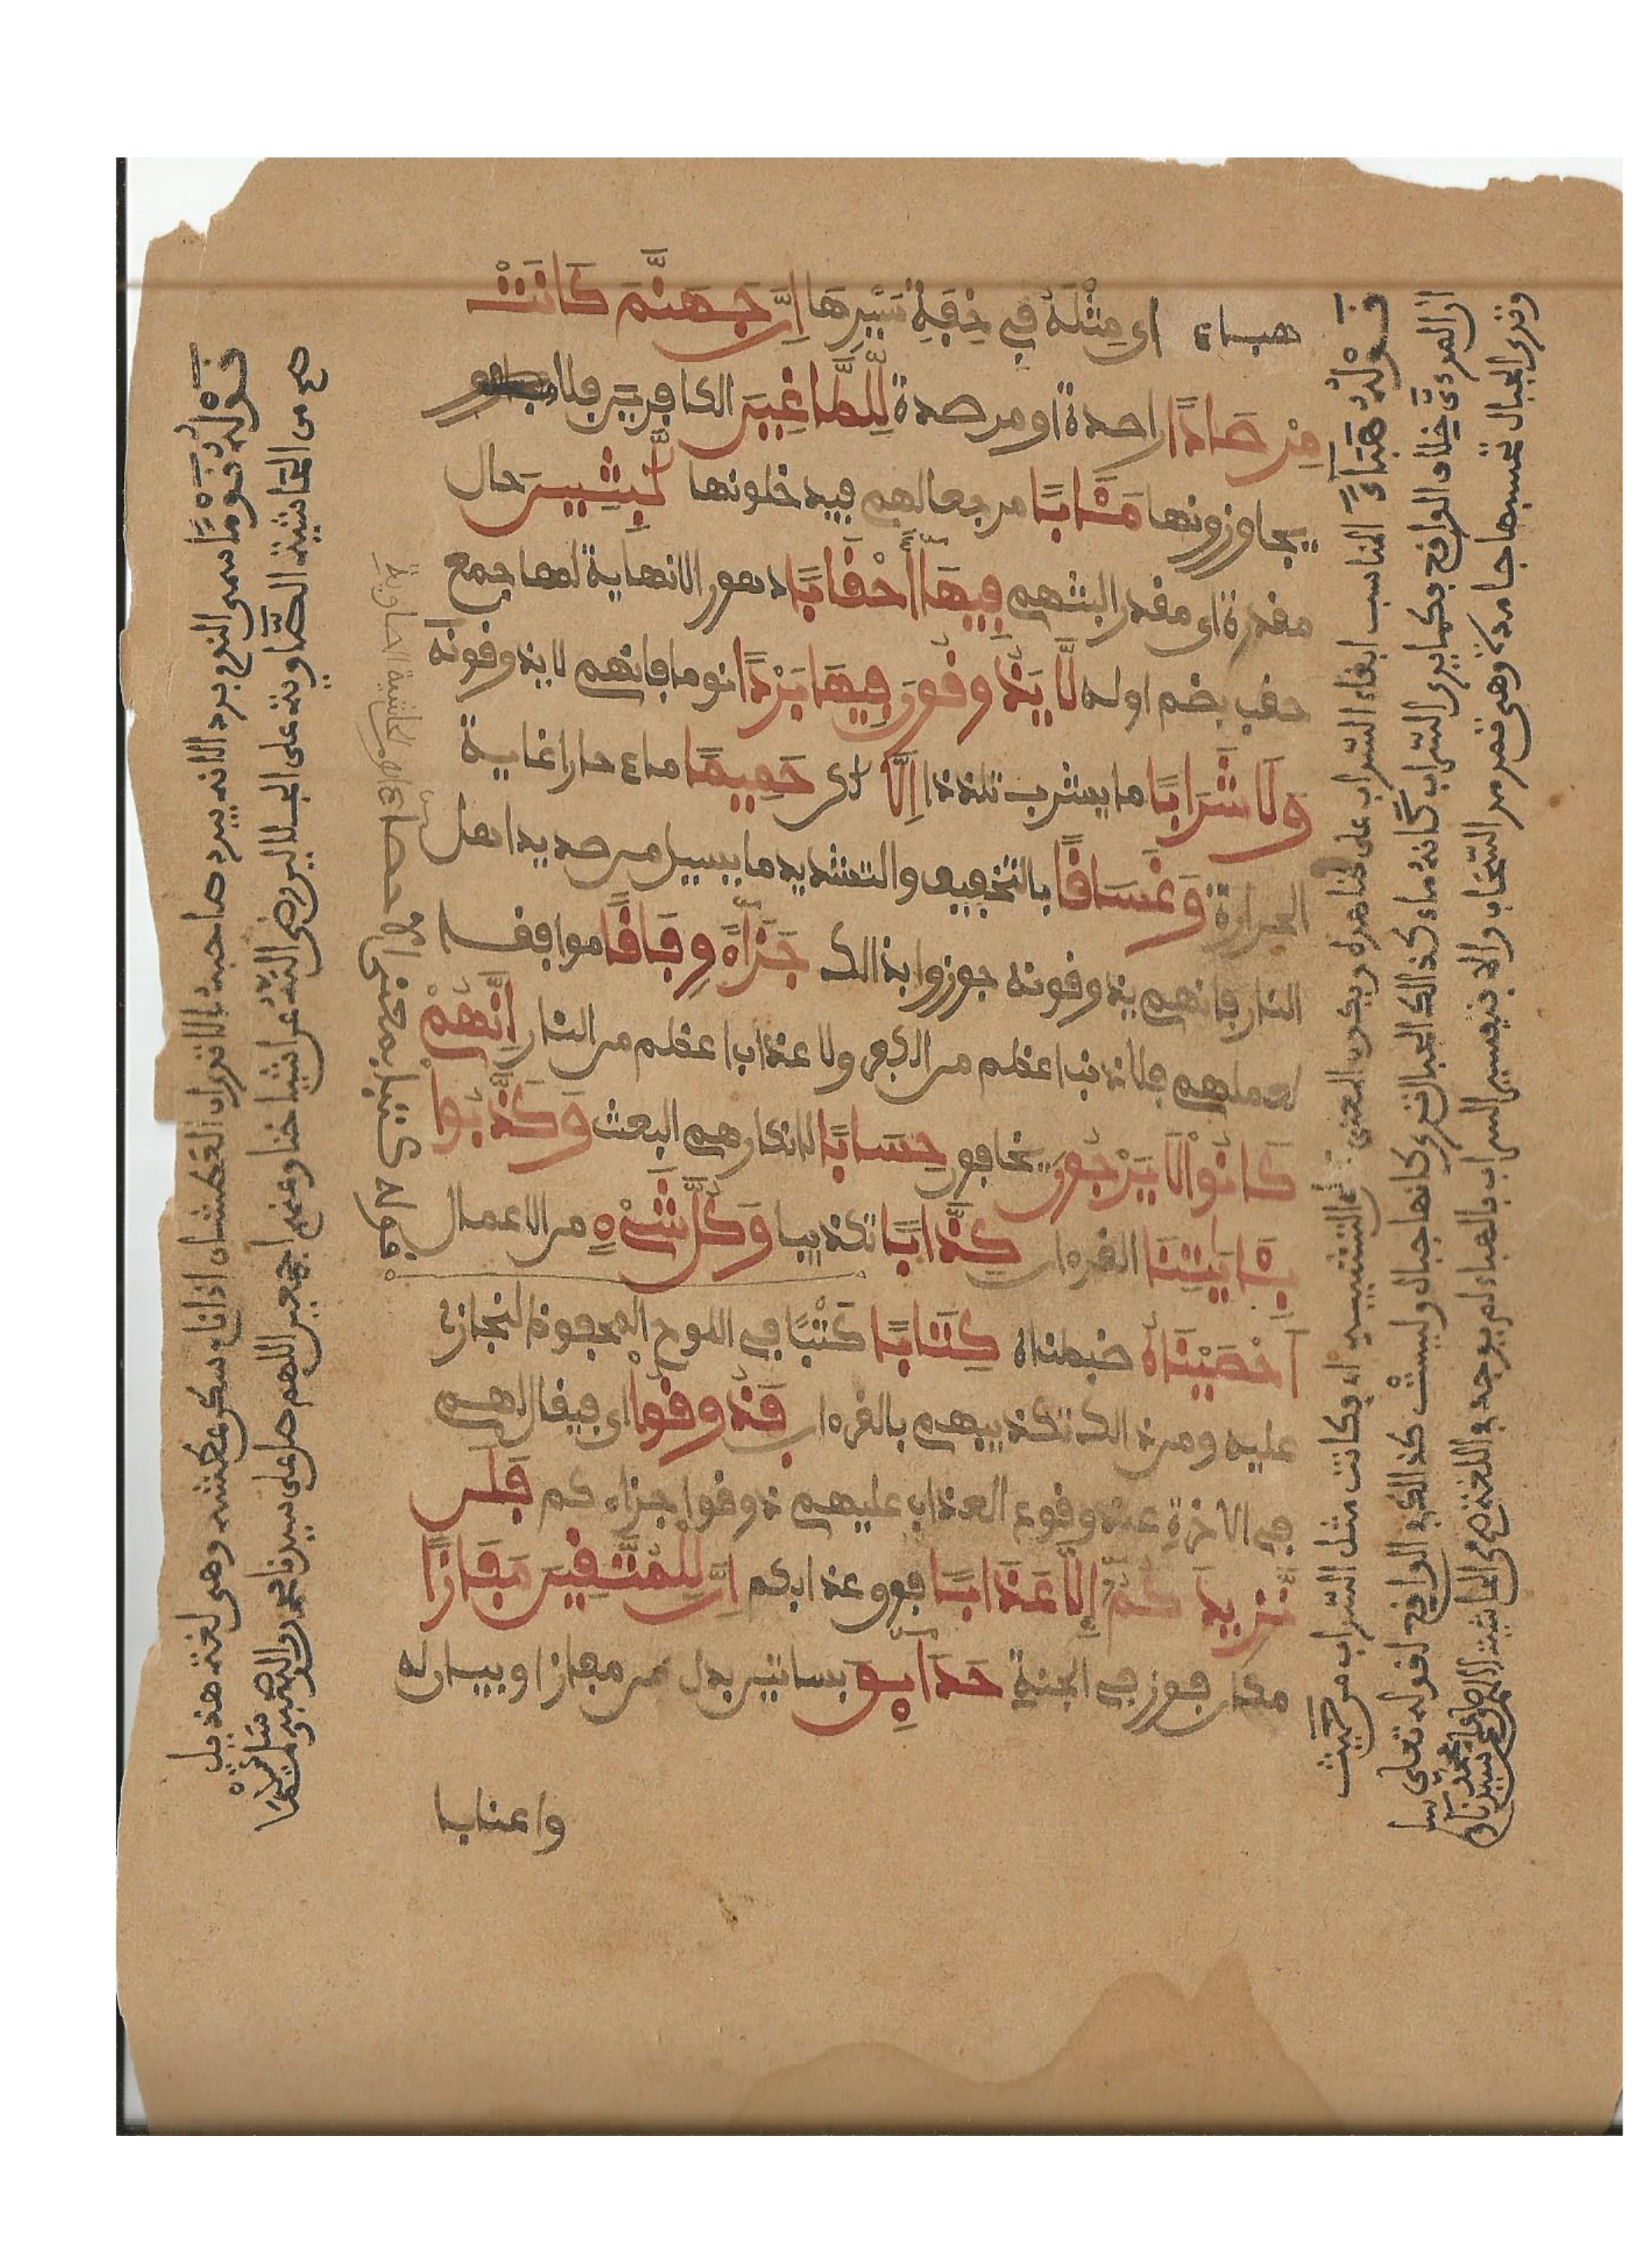 هباء اى مِثْلَهُ فِي خِفَةِ سَيْرِهَا اِنَّ جَهَنَّمَ كَانَتْ
مِرْصَادًا راصدة او مرصدة لِّلطَّاغِيينَ الكافرين فلا
يتجاوزونها مَـَٔابًا مرجعا لهم فيدخلونها لَّبِثِينَ حال
مقدرة اى مقدر البثهم فِيهَا أَحْقَابًا دهورا لانهاية لها جمع
حقب بضم اوله لَّا يَذُوقُونَ فِيهَا بَرْدًا نوما فانهم لا يذوقونه
وَلَا شَرَابًا ما يشرب تلذذا اِلَّا لكن حَمِيمًا ماء حارا غاية
الحرارة وَغَسَاقًا بالتخفيف والتشديد ما يسيل من صديد اهل
النار فانهم يذوقونه جوزوا بذالك جَزَآءً وِفَاقًا موافقا
لعملهم فلا ذنب اعظم من الكفر ولا عذاب اعظم من النار إِنَّهُمْ
كَانُوا لَا يَرْجُونَ يخافون حِسَابًا لانكارهم البعث وَكَذَّبُوا
بِـَٔايَٰتِنَا القرءان كِذَّابًا تكذيبا وَكُلَّ شَيْءٍ من الاعمال
أَحْصَيْنَاهُ ضبطناه كِتَابًا كَتْبًا في اللوح المحفوظ لنجازى
عليه ومن ذالك تكذيبهم بالقرءان فَذُوقُوا اى فيقال لهم
في الاخرة عند وقوع العذاب عليهم ذوقوا جزاءكم فَلَن
نَّزِيدَكُمْ إِلَّا عَذَابًا فوق عذابكم اِنَّ لِلْمُتَّقِينَ مَفَازًا
مكان فوز في الجنة حَدَآئِقَ بساتين بدل من مفازا او بيان له
واعنابا
قَوْلُهُ هَبَاءً المناسب ابقاء السراب على ظاهره ويكون المعنى على التشبيه اى فكانت مثل السراب من حيث
ان المرءى خلاف الواقع فكما يرى السراب كانه ماء كذالك الجبال ترى كانها جبال وليست كذالك في الواقع لقوله تعلى
وترى الجبال تحسبها جامدة وهى تمر مر السحاب والا فتفسير السراب بالهباء لم يوجد في اللغة
قَوْلُهُ نَوْمًا سمى النوم بردا لانه يبرد صاحبه الا ترى ان العطشان اذا نام سكن عطشه وهى لغة هذيل
صح من الحاشية الصاوية على الجلالين رضى الله عن اشياخنا وعنهم اجمعين اللهم صل على سيدنا محمد